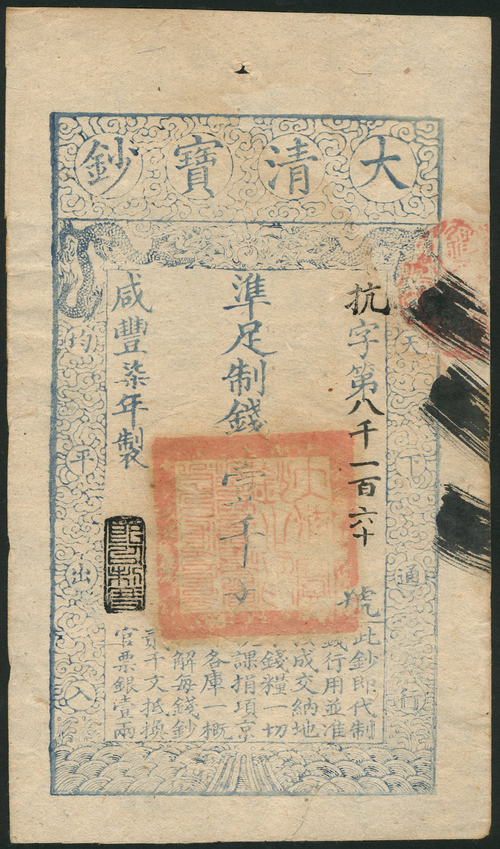 大清寶鈔
天下通行
抗字第八千一百六十號
準足制錢壹千文
咸豐柒年製
均平出入
此鈔即代制
錢行用並准
成交納地
錢糧一切
課捐項京
各庫一概
解每錢鈔
貳千文抵換
官票銀壹兩